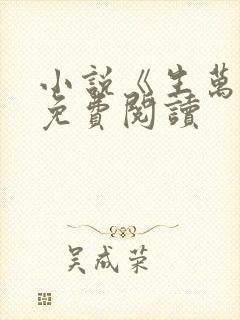 小說《生萬
免費閱讀
吴成荣